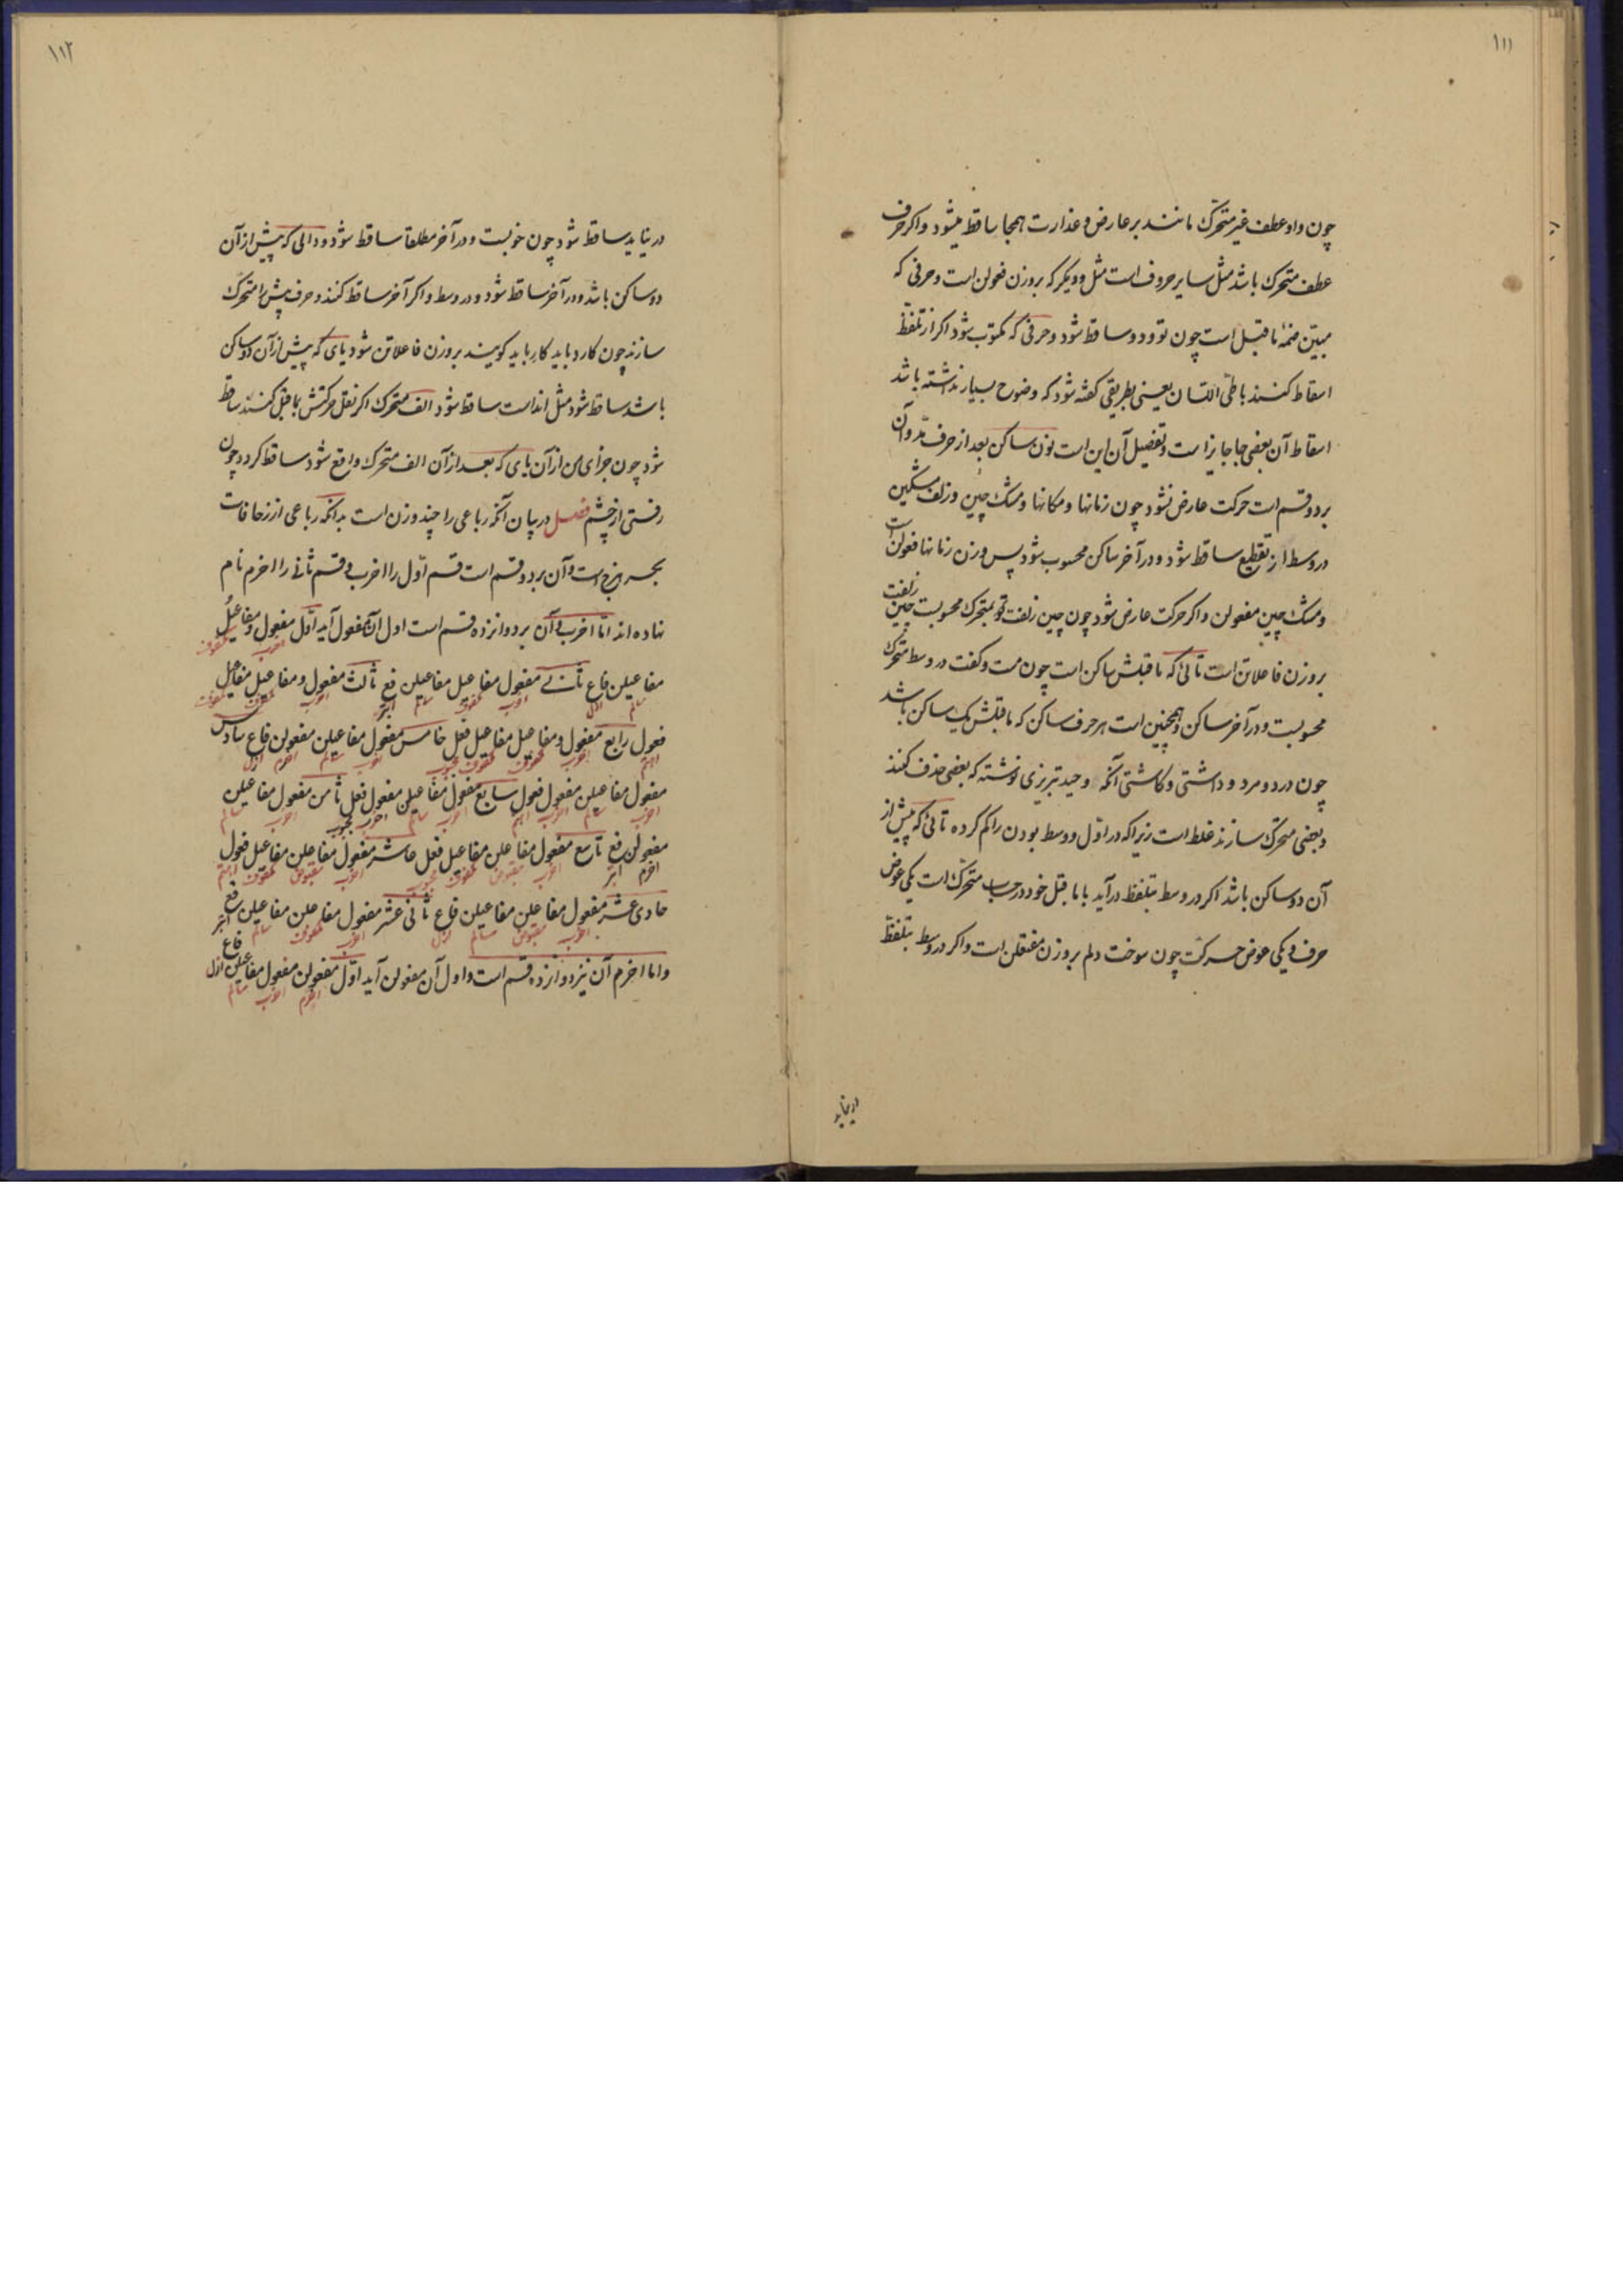 ۱۱۱
چون واو عطف غیر متحرک مانند بر عارض و عذارت همه جا ساقط میشود و اکر حرف
عطف متحرک باشد مثل سایر حروف است مثل و دیکر که بر وزن فعولن است و حرفی که
مبین ضمهٔ ماقبل است چون تو و دو ساقط شود و حرفی که مکتوب شود اکر از تلفظ
اسقاط کنند باطی اللسان یعنی بطریقی کفته شود که وضوح بسیار نداشته باشد
اسقاط آن بعضی جا جایز است و تفصیل آن این است نون ساکن بعد از حرف مد و آن
بر دو قسم است حرکت عارض نشود چون زمانها و مکانها و مشک چین و زلف مشکین
در وسط از تقطیع ساقط شود و در آخر ساکن محسوب شود پس وزن زمانها فعولن است
و مشک چین مفعولن و اکر حرکت عارض شود چون چین زلفت تو بمتحرک محسوبست چین زلفت
بر وزن فاعلاتن است تائی که ماقبلش ساکن است چون مست و کفت در وسط متحرک
محسوبست و در آخر ساکن و همچنین است هر حرف ساکن که ماقبلش یک ساکن باشد
چون درد و مرد و داشتی و کاشتی آنکه وحید تبریزی نوشته که بعضی حذف کنند
و بعضی متحرک سازند غلط است زیرا که در اول و وسط بودن را کم کرده تائی که پیش از
آن دو ساکن باشد اکر در وسط بتلفظ در آید با ماقبل خود در حساب متحرک است یکی عوض
حرف و یکی عوض حرکت چون سوخت دلم بر وزن مفتعلن است و اکر در وسط بتلفظ
در نیاید
۱۱۲
در نیاید ساقط شود چون خوبست و در آخر مطلقا ساقط شود و دالی که پیش از آن
دو ساکن باشد و در آخر ساقط شود و در وسط و اکر آخر ساقط کنند و حرف پیش را متحرک
سازند چون کارد باید کار باید کویند بر وزن فاعلاتن شود یای که پیش از آن دو ساکن
باشد ساقط شود مثل انداست ساقط شود الف متحرک اکر نقل حرکتش بماقبل کنند ساقط
شود چون جزای من از آن یای که بعد از آن الف متحرک واقع شود ساقط کردد چون
رفتی از چشم فصل در بیان آنکه رباعی را چند وزن است بدانکه رباعی از زحافات
بحر هزج است و آن بر دو قسم است قسم اول را اخرب و قسم ثانی را اخرم نام
نهاده اند اما اخرب و آن بر دوانزده قسم است اول آن مفعول آید اول مفعول و مفاعیلُ
اخرب مکفوف
مفاعیلن فاع ثانی مفعول مفاعیل مفاعیلن فع ثالث مفعول و مفاعیل مفاعیل
سالم ازل اخرب مکفوف سالم ابتر اخرب مکفوف مکفوف
فعول رابع مفعول و مفاعیل مفاعیل فعل خامس مفعول مفاعیلن مفعولن فاع سادس
اهتم اخرب مکفوف مکفوف مجبوب اخرب سالم اخرم ازل
مفعول مفاعیلن مفعول فعول سابع مفعول مفاعیلن مفعول فعل ثامن مفعول مفاعیلن
اخرب سالم اخرب اهتم اخرب سالم اخرب مجبوب اخرب سالم
مفعولن فع تاسع مفعول مفاعلن مفاعیل فعل عاشر مفعول مفاعلن مفاعیل فعول
اخرم ابتر اخرب مقبوض مکفوف مجبوب اخرب مقبوض مکفوف اهتم
حادی عشر مفعول مفاعلن مفاعیلن فاع ثانی عشر مفعول مفاعلن مفاعیلن فع
اخرب مقبوض سالم ازل اخرب مکفوف سالم ابتر
و اما اخرم آن نیز دوانزده قسم است و اول آن مفعولن آید اول مفعولن مفعول مفاعیلن فاع
اخرم اخرب سالم ازل